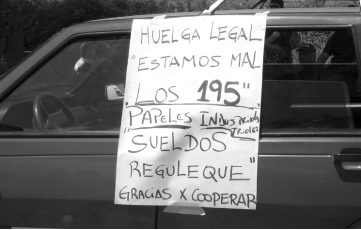 HUELGA LEGAL
"ESTAMOS MAL
LOS 195"
"PAPELES INDUSTRIALES
SUELDOS
REGULEQUE"
GRACIAS X COOPERAR